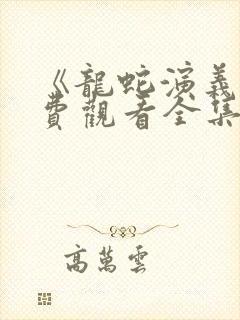 《龍蛇演義
費觀看全集
高萬雲